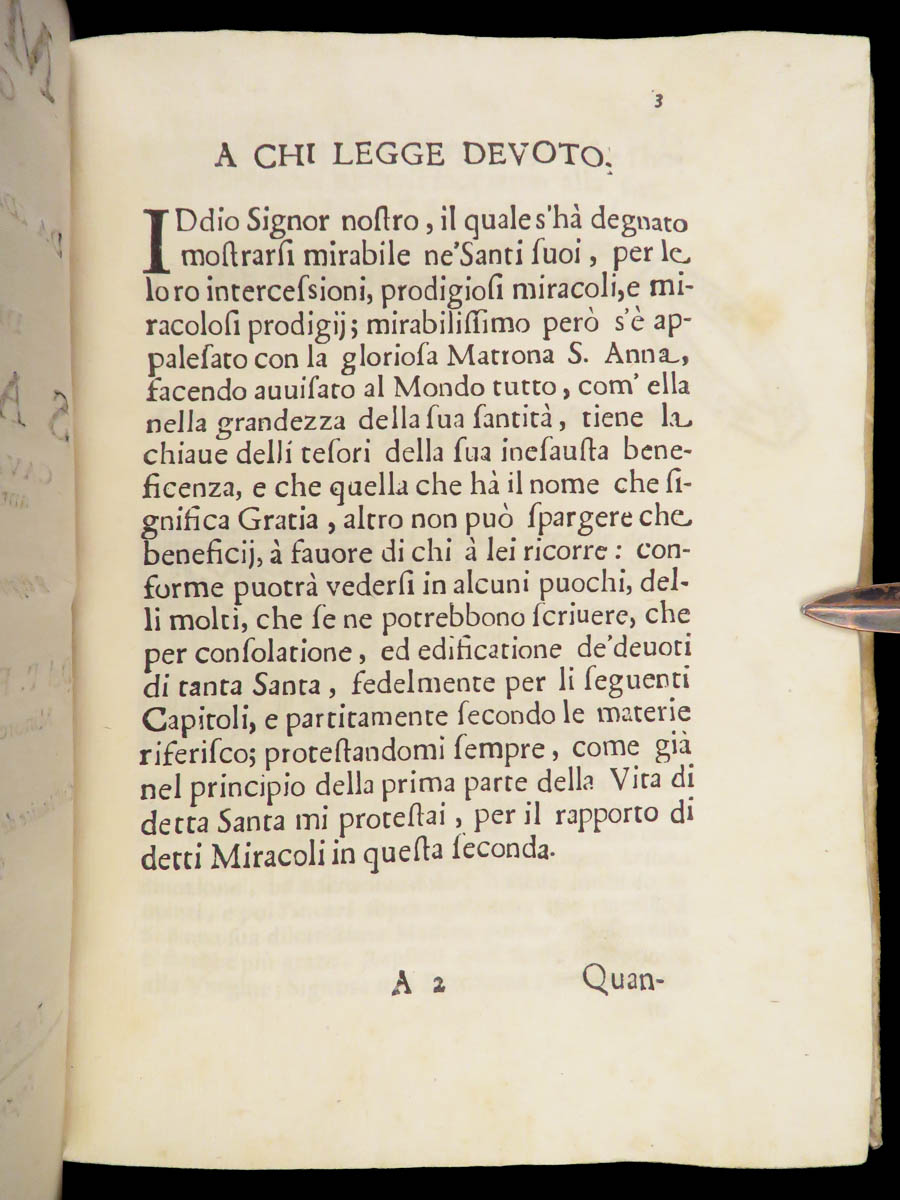 3
A CHI LEGGE DEVOTO.
IDdio Signor noſtro, il quale s'hà degnato
moſtrarſi mirabile ne'Santi ſuoi, per le
loro interceſsioni, prodigioſi miracoli, e mi-
racoloſi prodigij; mirabiliſſimo però s'è ap-
paleſato con la glorioſa Matrona S. Anna,
facendo auuiſato al Mondo tutto, com' ella
nella grandezza della ſua ſantità, tiene la
chiaue dellí teſori della ſua ineſauſta bene-
ficenza, e che quella che hà il nome che ſi-
gnifica Gratia, altro non può ſpargere che
beneficij, à fauore di chi à lei ricorre: con-
forme puotrà vederſi in alcuni puochi, del-
li molti, che ſe ne potrebbono ſcriuere, che
per conſolatione, ed edificatione de'deuoti
di tanta Santa, fedelmente per li ſeguenti
Capitoli, e partitamente ſecondo le materie
riferiſco; proteſtandomi ſempre, come già
nel principio della prima parte della Vita di
detta Santa mi proteſtai, per il rapporto di
detti Miracoli in queſta ſeconda.
A 2 Quan-